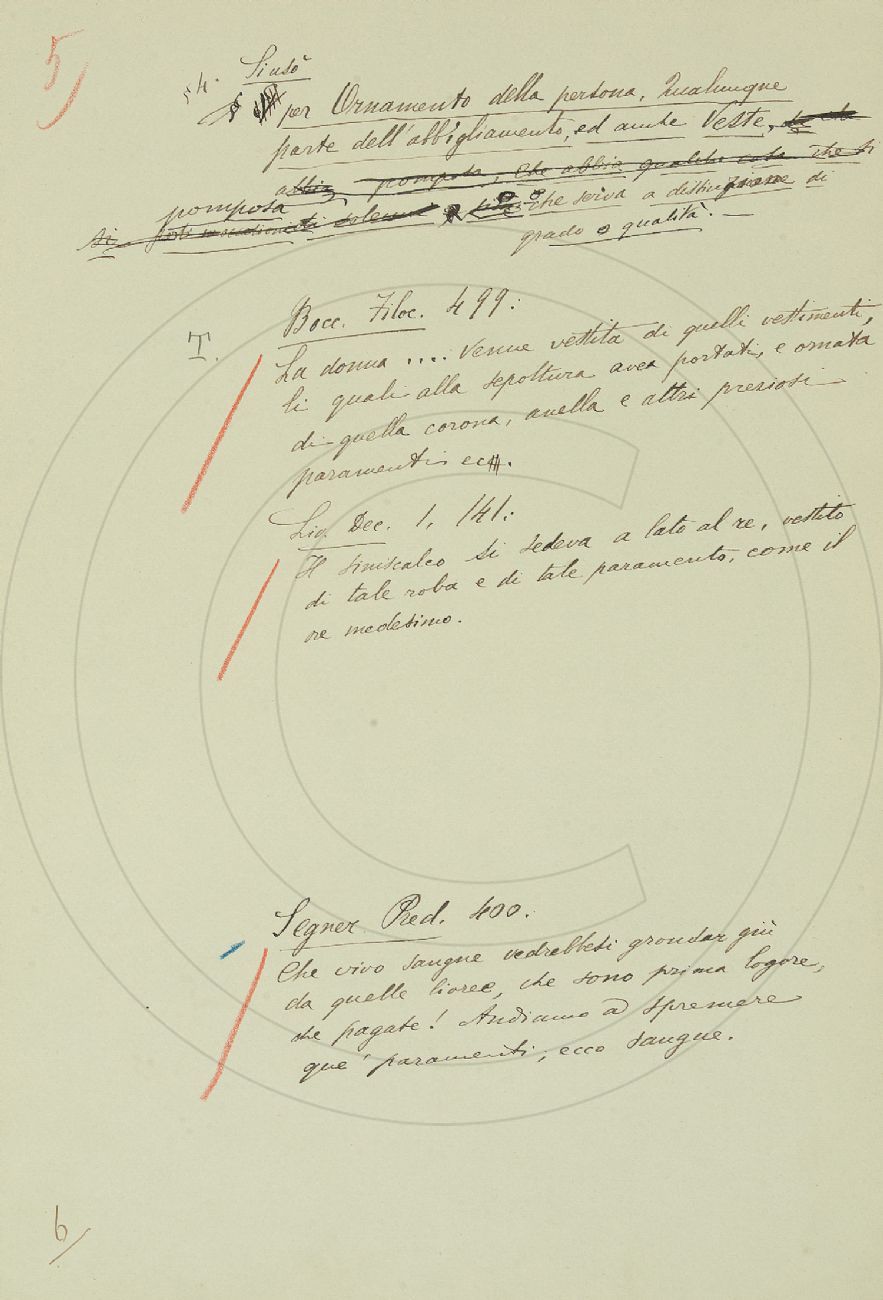 5
54. Si usò
§ per Ornamento della persona, Qualunque
parte dell'abbigliamento, ed anche Veste,
abbia pomposa, che abbia qualche cosa che si
pomposa che serva a distinzione di
si porti in occasioni solenni
grado o qualità. —
T. Bocc. Filoc. 499:
La donna .... venne vestita di quelli vestimenti,
li quali alla sepoltura avea portati, e ornata
di quella corona, anella e altri preziosi
paramenti ec.
Liv. Dec. 1, 141:
Il siniscalco si sedeva a lato al re, vestito
di tale roba e di tale paramento, come il
re medesimo.
Segner. Pred. 400.
Che vivo sangue vedrebbesi grondar giù
da quelle livree, che sono prima logore,
che pagate! Andiamo a spremere
que' paramenti; ecco sangue.
6